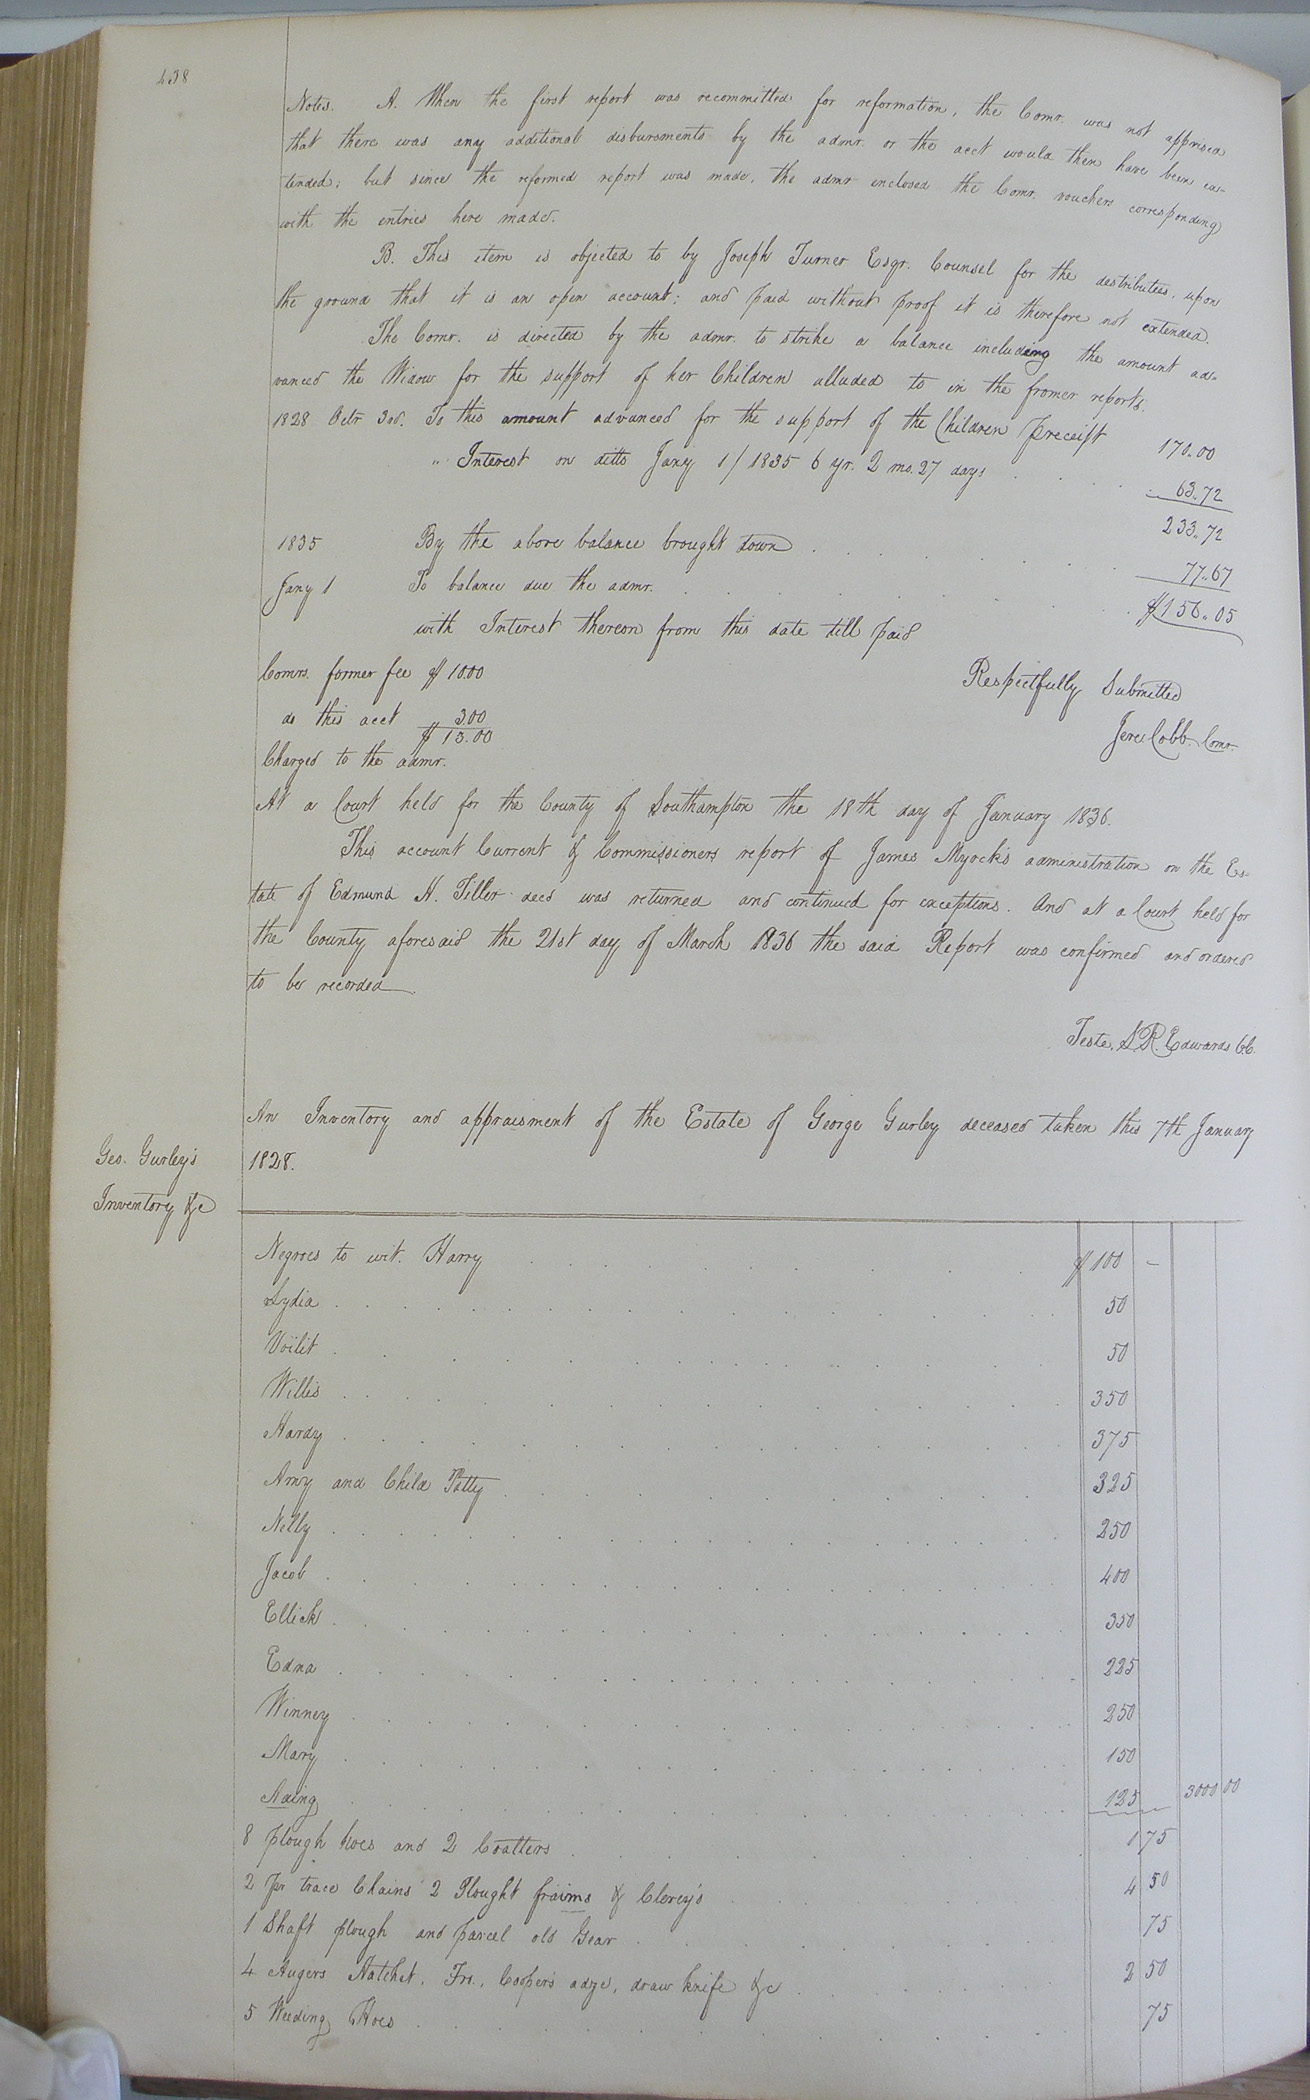 438
Notes. A. When the first report was recommitted for reformation, the Comr. was not apprised
that there was any additional disbursments by the admr. or the acct would then have been ex-
tended; but since the reformed report was made, the admr enclosed the Comr. vouchers corresponding
with the entries here made.
B. This item is objected to by Joseph Turner Esqr. Counsel for the destributees, upon
the ground that it is an open account; and paid without proof it is therefore not extended.
The Comr. is directed by the admr. to strike a balance including the amount ad-
vanced the Widow for the support of her Children alluded to in the fromer reports.
1828 Octr 3rd. To this amount advanced for the support of the Children preceipt 170.00
" Interest on ditto Jany 1/1835 6 yr. 2 mo. 27 days 63.72
233.72
1835 By the above balance brought down 77.67
Jany 1 To balance due the admr. $156.05
with Interest thereon from this date till paid
Comrs. former fee $10.00
Respectfully Submitted
do this acct 3.00
$13.00
Jere Cobb Comr.
Charged to the admr.
At a Court held for the County of Southampton the 18th day of January 1836.
This account Current & Commissioners report of James Myock's administration on the Es-
tate of Edmund H. Tiller decd was returned and continued for exceptions. And at a Court held for
the County aforesaid the 21st day of March 1836 the said Report was confirmed and ordered
to be recorded
Teste, S.R. Edwards CC.
An Inventory and appraisment of the Estate of George Gurley deceased taken this 7th January
1828.
Geo. Gurley's
Inventory &c
Negroes to wit. Harry $100 –
Lydia 50
Voilit 50
Willis 350
Hardy 375
Amy and Child Patty 325
Nelly 250
Jacob 400
Ellick 350
Edna 225
Winney 250
Mary 150
Naing 125 3000 00
8 plough hoes and 2 Coatters 1 75
2 pr trace Chains 2 Plought fraims & Clevey's 4 50
1 Shaft plough and parcel old Gear 75
4 Augers Hatchet, Frs., Coopers adze, draw knife &c 2 50
5 Weeding Hoes 75